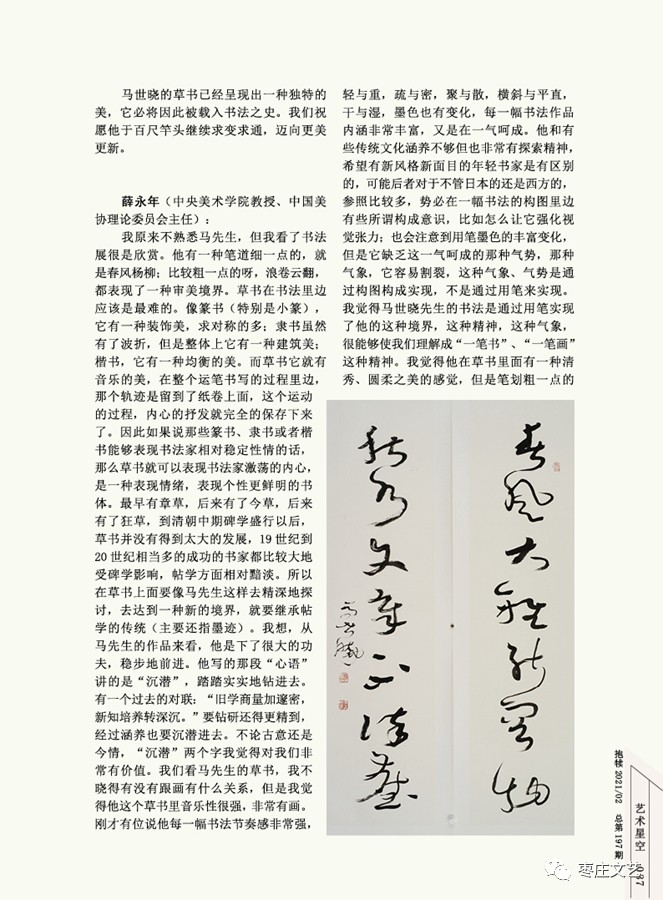 马世晓的草书已经呈现出一种独特的
美，它必将因此被载入书法之史。我们祝
愿他于百尺竿头继续求变求通，迈向更美
更新。
薛永年（中央美术学院教授、中国美
协理论委员会主任）：
我原来不熟悉马先生，但我看了书法
展很是欣赏。他有一种笔道细一点的，就
是春风杨柳；比较粗一点的呀，浪卷云翻，
都表现了一种审美境界。草书在书法里边
应该是最难的。像篆书（特别是小篆），
它有一种装饰美，求对称的多；隶书虽然
有了波折，但是整体上它有一种建筑美；
楷书，它有一种均衡的美。而草书它就有
音乐的美，在整个运笔书写的过程里边，
那个轨迹是留到了纸卷上面，这个运动
的过程，内心的抒发就完全的保存下来
了。因此如果说那些篆书、隶书或者楷
书能够表现书法家相对稳定性情的话，
那么草书就可以表现书法家激荡的内心，
是一种表现情绪，表现个性更鲜明的书
体。最早有章草，后来有了今草，后来
有了狂草，到清朝中期碑学盛行以后，
草书并没有得到太大的发展，19世纪到
20世纪相当多的成功的书家都比较大地
受碑学影响，帖学方面相对黯淡。所以
在草书上面要像马先生这样去精深地探
讨，去达到一种新的境界，就要继承帖
学的传统（主要还指墨迹）。我想，从
马先生的作品来看，他是下了很大的功
夫，稳步地前进。他写的那段“心语”
讲的是“沉潜”，踏踏实实地钻进去。
有一个过去的对联：“旧学商量加邃密，
新知培养转深沉。”要钻研还得更精到，
经过涵养也要沉潜进去。不论古意还是
今情，“沉潜”两个字我觉得对我们非
常有价值。我们看马先生的草书，我不
晓得有没有跟画有什么关系，但是我觉
得他这个草书里音乐性很强，非常有画。
刚才有位说他每一幅书法节奏感非常强，
轻与重，疏与密，聚与散，横斜与平直，
干与湿，墨色也有变化，每一幅书法作品
内涵非常丰富，又是在一气呵成。他和有
些传统文化涵养不够但也非常有探索精神，
希望有新风格新面目的年轻书家是有区别
的，可能后者对于不管日本的还是西方的，
参照比较多，势必在一幅书法的构图里边
有些所谓构成意识，比如怎么让它强化视
觉张力；也会注意到用笔墨色的丰富变化，
但是它缺乏这一气呵成的那种气势，那种
气象，它容易割裂，这种气象、气势是通
过构图构成实现，不是通过用笔来实现。
我觉得马世晓先生的书法是通过用笔实现
了他的这种境界，这种精神，这种气象，
很能够使我们理解成“一笔书”、“一笔画”
这种精神。我觉得他在草书里面有一种清
秀、圆柔之美的感觉，但是笔划粗一点的
春风大雅能容物
秋水文章不染尘
马世晓
抱犊 2021/02 总第197期
艺术星空 087
枣庄文艺